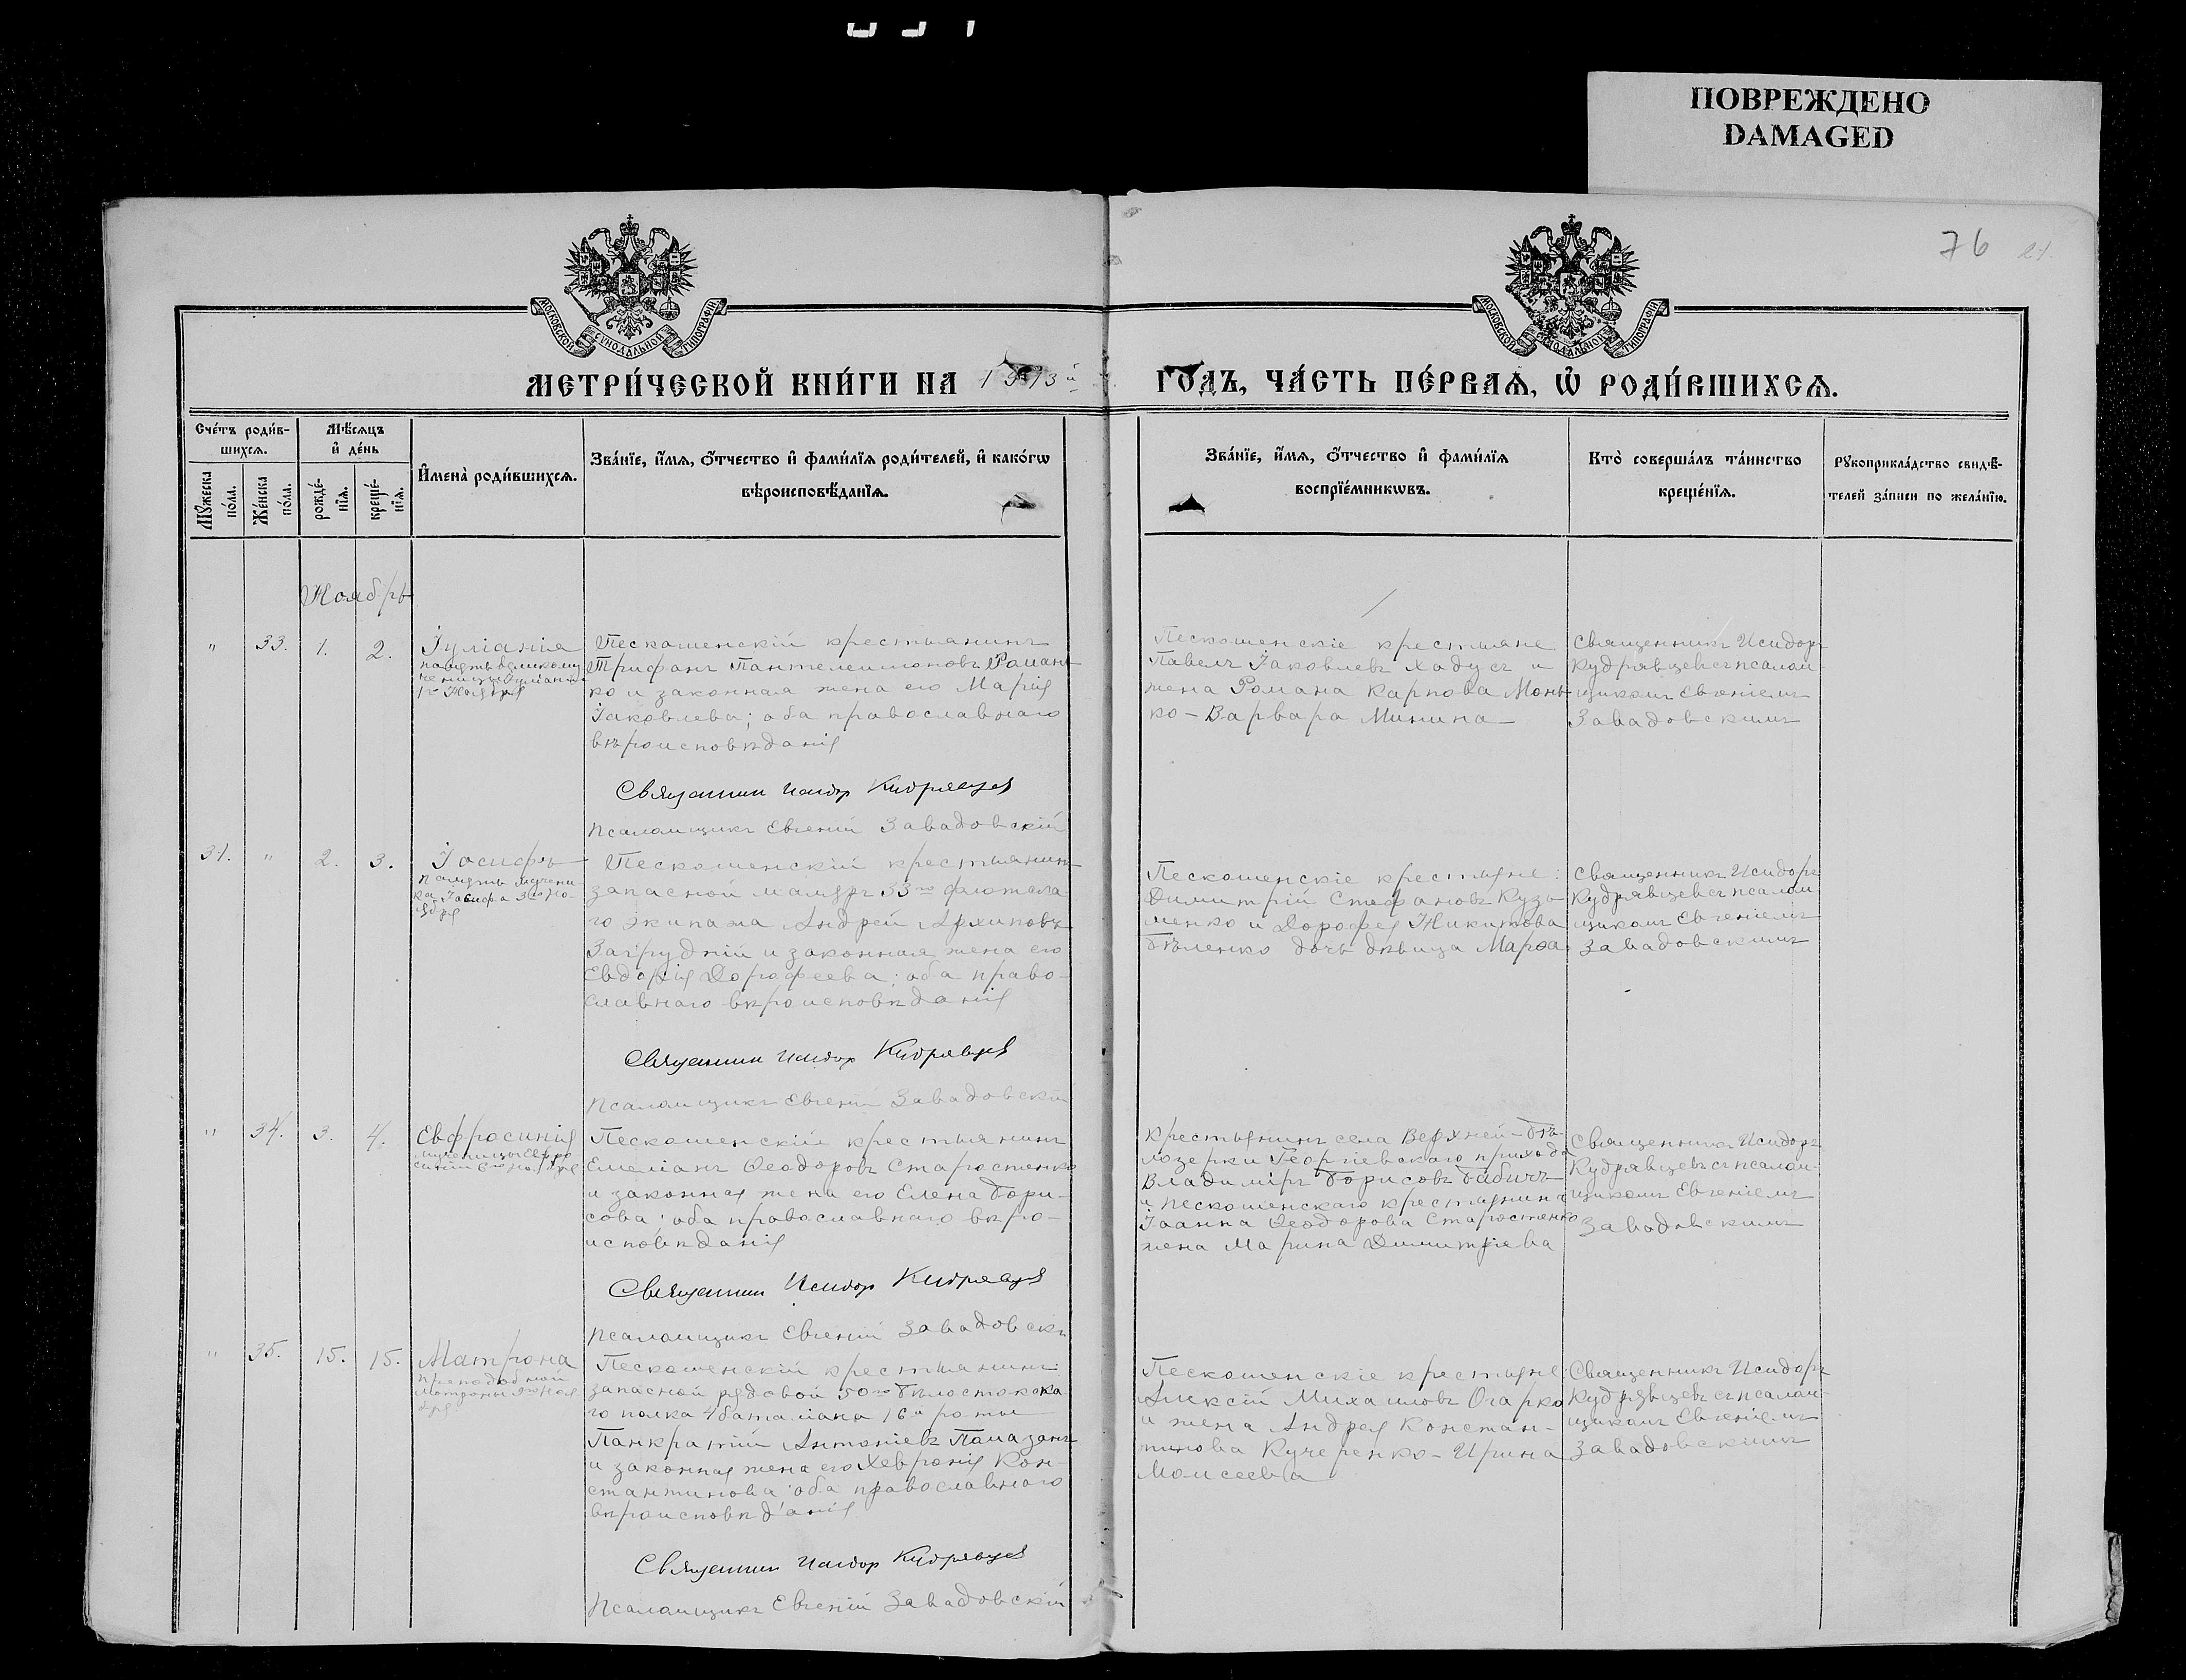 ПОВРЕЖДЕНО
DAMAGED
76
21.
МОСКОВСКОЙ СѴНОДАЛЬНОЙ ТИПОГРАФІИ
МОСКОВСКОЙ СѴНОДАЛЬНОЙ ТИПОГРАФІИ
МЕТРИ́ЧЕСКОЙ КНИ́ГИ НА 1913й ГОДЪ, ЧА́СТЬ ПЕ́РВАѦ, Ѡ҆ РОДИ́ВШИХСѦ.
Сче́тъ роди́в-
шихсѧ.
Мꙋ́жеска по́ла.
Же́нска по́ла.
Мѣ́сѧцъ
и҆ де́нь
рожде́-
нїѧ.
креще́-
нїѧ.
И҆мена̀ роди́вшихсѧ.
Зва́нїе, и҆́мѧ, ѻ҆́тчество и҆ фами́лїѧ роди́телей, и҆ како́гѡ
вѣроисповѣ́данїѧ.
Зва́нїе, и҆́мѧ, ѻ҆́тчество и҆ фами́лїѧ
воспрїе́мникѡвъ.
Кто̀ соверша́лъ та́инство
креще́нїѧ.
Рꙋкоприкла́дство свидѣ́-
телей за́писи по жела́нїю.
Ноябрь
"
33.
1.
2.
Іуліанія
память великому
ченицы Іуліаніи
1го Ноября
Пескошенскій крестьянинъ
Трифонъ Пантелеимоновъ Романь
ко и законная жена его Марія
Іаковлева; оба православнаго
вѣроисповѣданія
Священникъ Исидор Кудрявцев
Псаломщикъ Евгеній Завадовскій
Пескошенскіе крестьяне
Павелъ Іаковлевъ Ходусъ и
жена Романа Карпова Монь
ко - Варвара Минина
Священникъ Исидоръ
Кудрявцевъ съ псалом-
щикомъ Евгеніемъ
Завадовскимъ
31.
"
2.
3.
Іосифъ
память мучени-
ка Іосифа 3го Но-
ября
Пескошенскій крестьянинъ
запасной матрозъ 33го флотска-
го экипажа Андрей Архиповъ
Загрудній и законная жена его
Евдокія Дорофеева; оба право-
славнаго вѣроисповѣданія
Священник Исидор Кудрявцев
Псаломщикъ Евгеній Завадовскій
Пескошенскіе крестьяне:
Димитрій Стефановъ Кузь-
менко и Дорофея Никитова
Бѣленко дочь дѣвица Марѳа
Священникъ Исидоръ
Кудрявцевъ съ псалом-
щикомъ Евгеніемъ
Завадовскимъ
"
34.
3.
4.
Евфросинія
мученицы Евфро
синіи 6го Ноября
Пескошенскій крестьянинъ
Емеліанъ Ѳеодоровъ Старостенко
и законная жена его Елена Бори-
сова; оба православнаго вѣро-
исповѣданія
Священник Исидор Кудрявцев
Псаломщикъ Евгеній Завадовскі
Крестьянинъ села Верхней-Бѣ-
лозерки Георгіевскаго прихода
Владиміръ Борисовъ Бабичъ
и Пескошенскаго крестьянина
Іоанна Ѳеодорова Старостенко
жена Марина Димитріева
Священникъ Исидоръ
Кудрявцевъ съ псалом-
щикомъ Евгеніемъ
Завадовскимъ
"
35.
15.
15.
Матрона
преподобной
Матроны 9го Ноя
бря
Пескошенскій крестьянинъ
запасной рядовой 50го Бѣлостокска
го полка 4 баталіона 16й роты
Панкратій Антоніевъ Памазанъ
и законная жена его Хевронія Кон-
стантинова; оба православнаго
вѣроисповѣданія
Священник Исидор Кудрявцев
Псаломщикъ Евгеній Завадовскій
Пескошенскіе крестьяне:
Алексій Михаиловъ Огарко
и жена Андрея Констан-
тинова Кучеренко - Ирина
Моисеева
Священникъ Исидоръ
Кудрявцевъ съ псалом-
щикомъ Евгеніемъ
Завадовскимъ